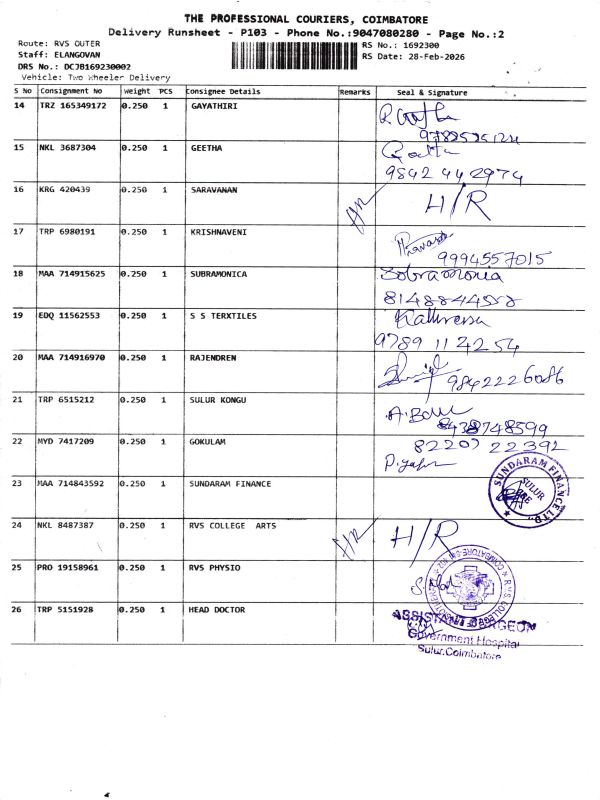 THE PROFESSIONAL COURIERS, COIMBATORE
Delivery Runsheet - P103 - Phone No.:9047080280 - Page No.:2
Route: RVS OUTER
Staff: ELANGOVAN
DRS No.: DCJB169230002
Vehicle: Two Wheeler Delivery
RS No.: 1692300
RS Date: 28-Feb-2026
S No Consignment No Weight PCS Consignee Details Remarks Seal & Signature
14 TRZ 165349172 0.250 1 GAYATHIRI
15 NKL 3687304 0.250 1 GEETHA
9842 442974
16 KRG 420439 0.250 1 SARAVANAN H/R H/R
17 TRP 6980191 0.250 1 KRISHNAVENI
9994557015
18 MAA 714915625 0.250 1 SUBRAMONICA
19 EDQ 11562553 0.250 1 S S TERXTILES
9789 11 4254
20 MAA 714916970 0.250 1 RAJENDREN 9842226086
21 TRP 6515212 0.250 1 SULUR KONGU
8438748599
22 MYD 7417209 0.250 1 GOKULAM 82207 22392
23 MAA 714843592 0.250 1 SUNDARAM FINANCE
SUNDARAM FINANCE LTD.
SULUR
24 NKL 8487387 0.250 1 RVS COLLEGE ARTS H/R H/R
25 PRO 19158961 0.250 1 RVS PHYSIO
26 TRP 5151928 0.250 1 HEAD DOCTOR
ASSISTANT SURGEON
Government Hospital
Sulur, Coimbatore